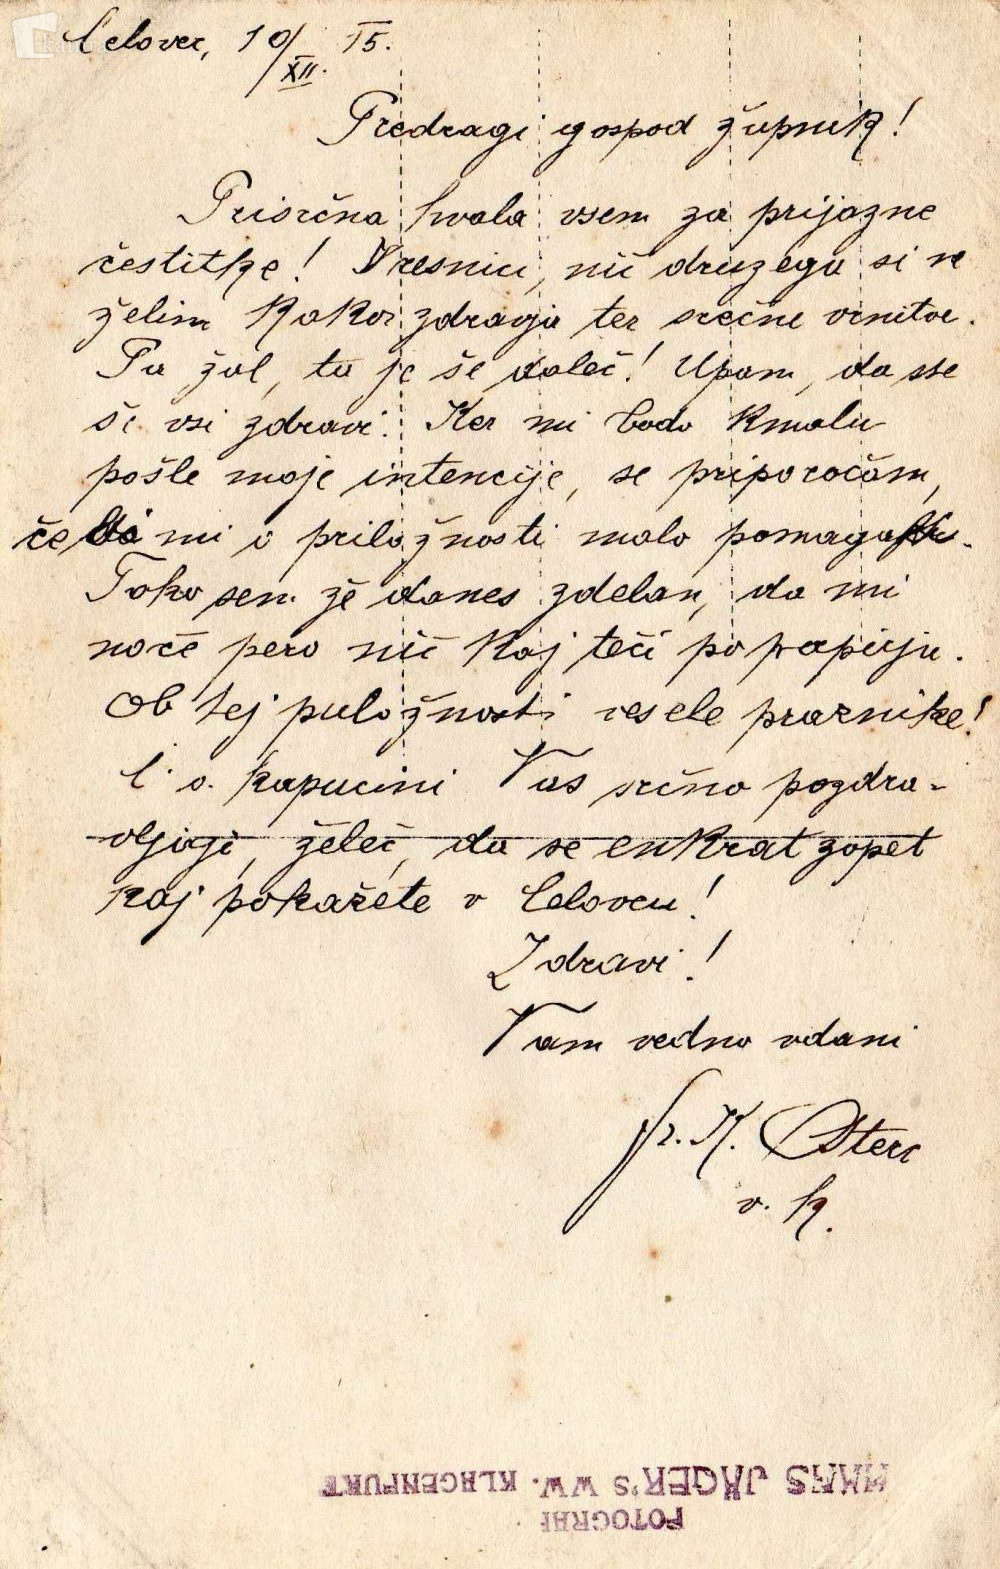 Celovec, 10/XII. 15.
Predragi gospod župnik!
Prisrčna hvala vsem za prijazne
čestitke! Vresnici, nič druzega si ne
želim kakor zdravja ter srečne vrnitve.
Pa žal, ta je še daleč! Upam, da ste
še vsi zdravi. Ker mi bodo kmalu
pošle moje intencije, se priporočam,
če mi o priložnosti malo
Tako sem že danes zdelan, da mi
noče pero nič kaj teči po papirju.
Ob tej priložnosti vesele praznike!
Č. o. kapucini Vas srčno pozdra-
vljajo, želeč, da se enkrat zopet
kaj pokažete v Celovcu!
Zdravi!
Vam vedno vdani
Fr. K. Sterc
v. k.
FOTOGRAF
HANS JÄGER'S WW. KLAGENFURT